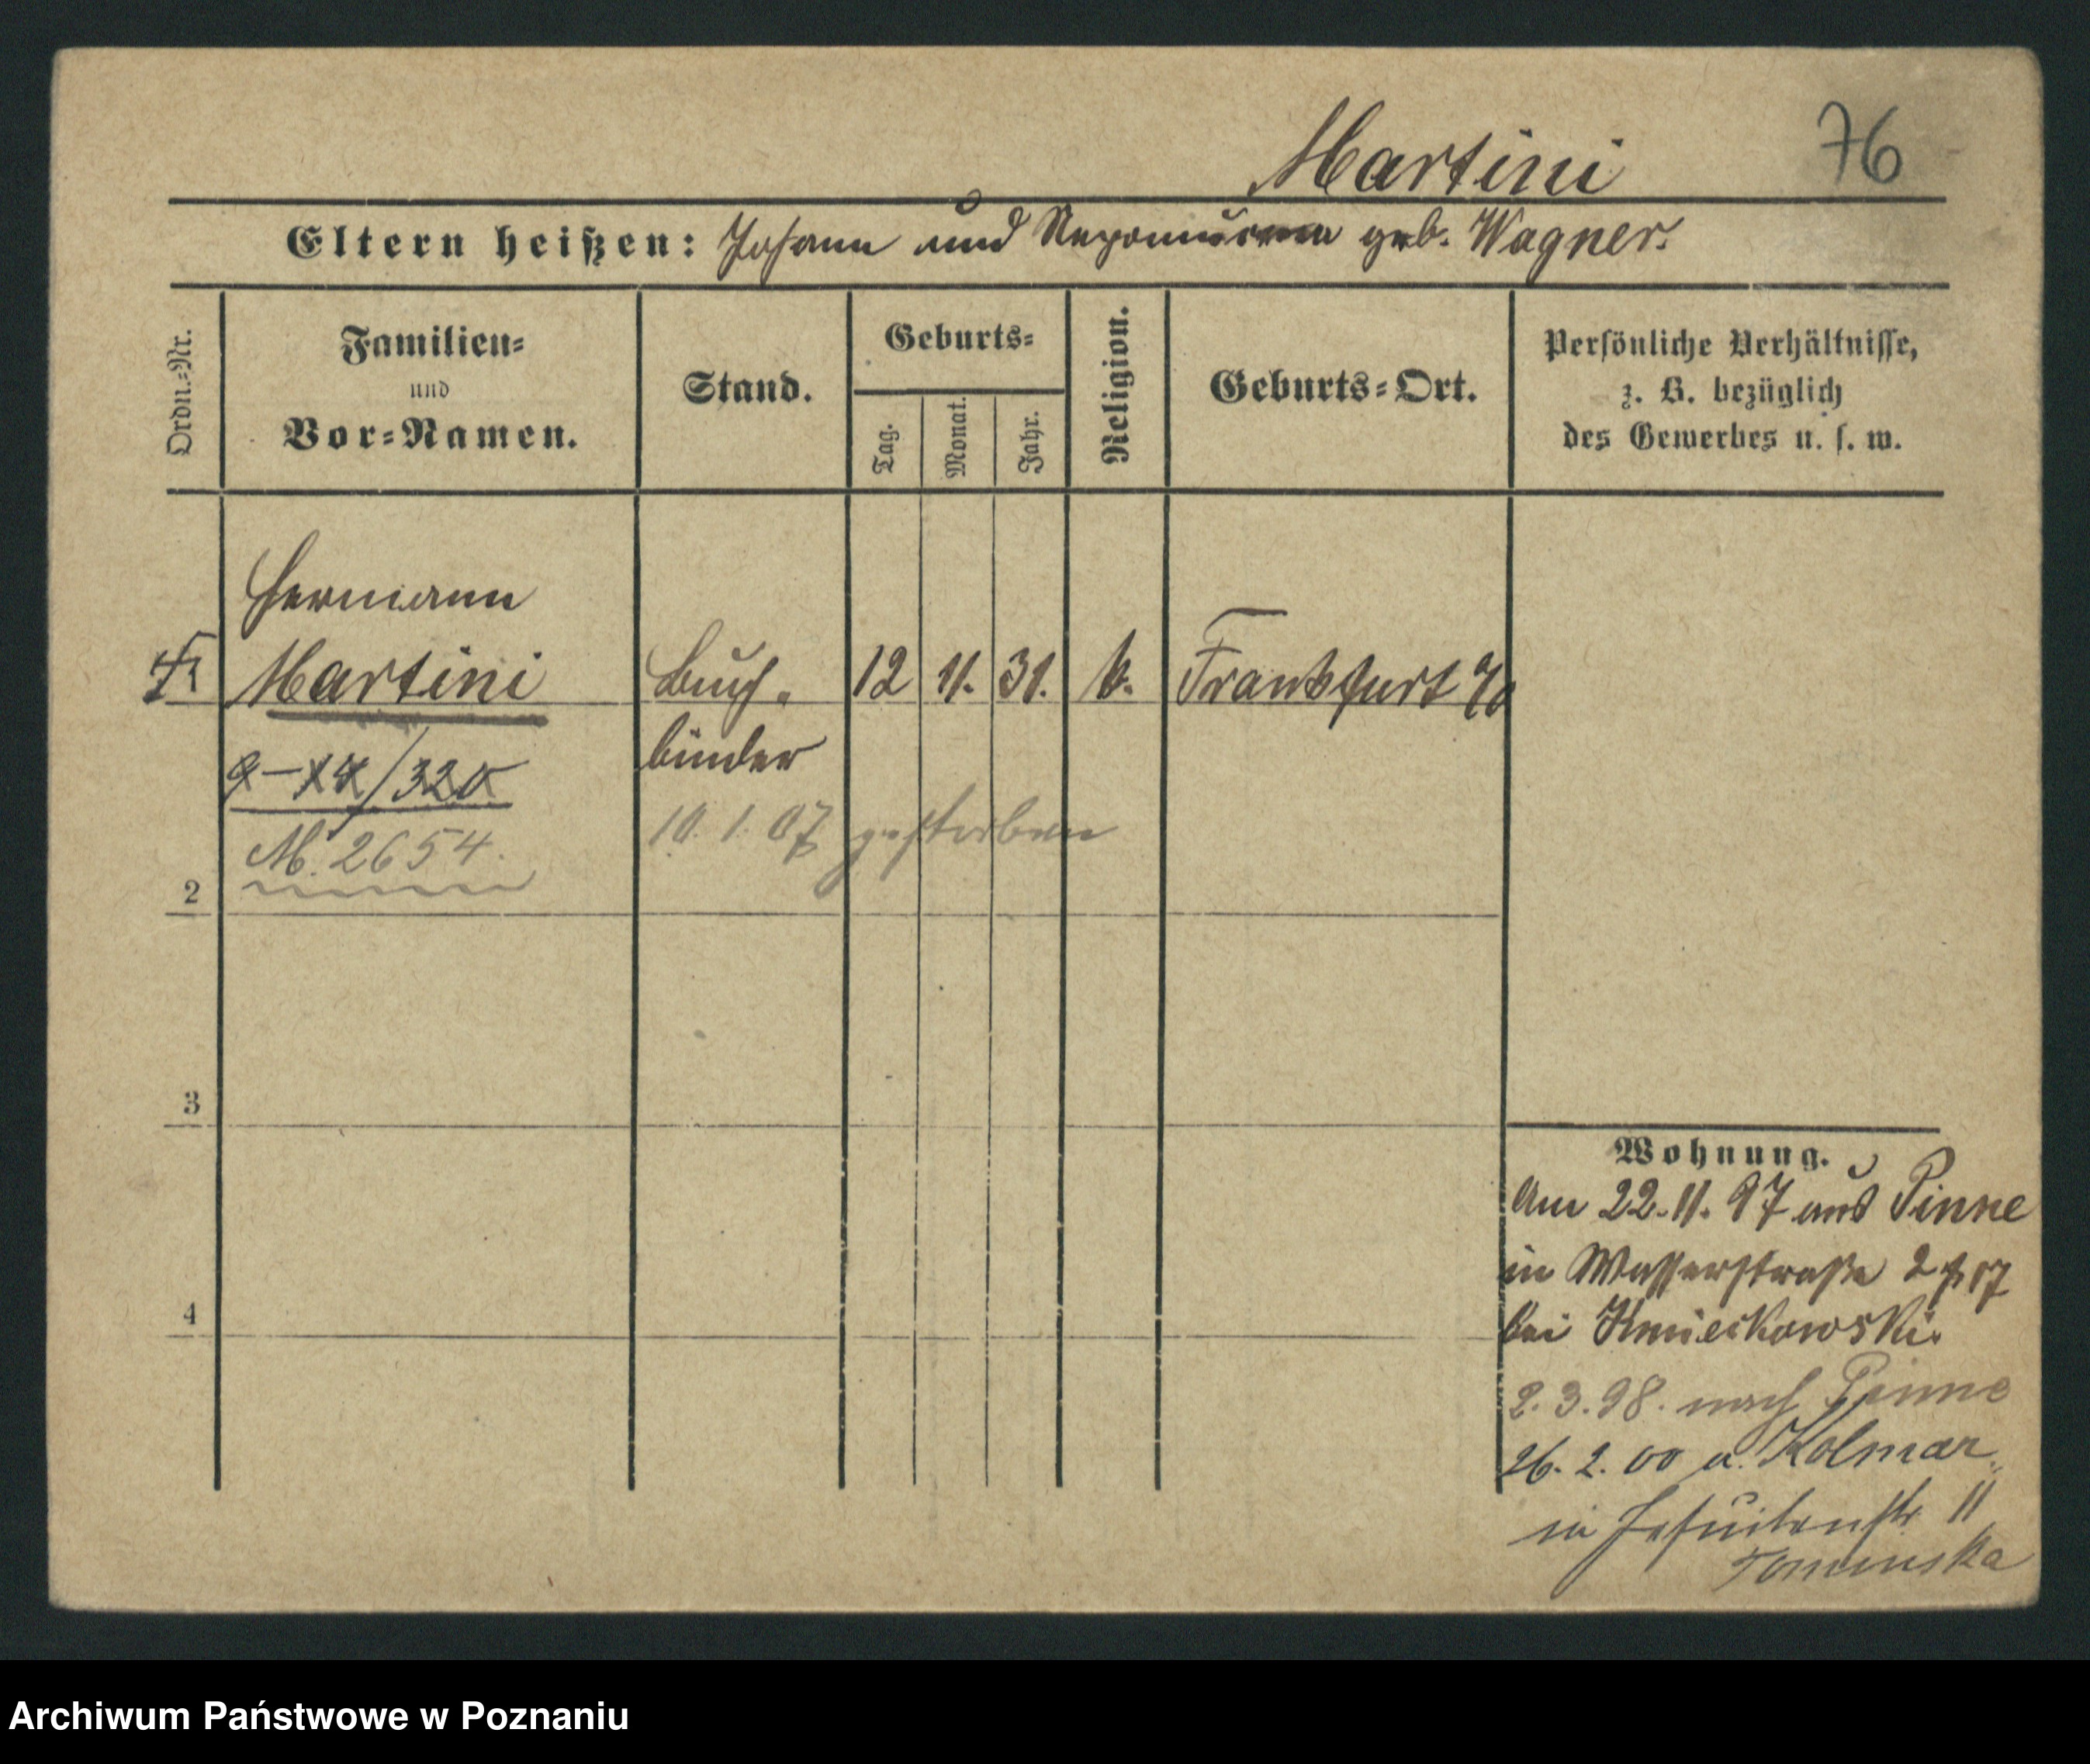 Martini
76
Eltern heißen: Johann und geb. Wagner.
Ordn.-Nr.
Familien-
und
Vor-Namen.
Stand.
Geburts-
Tag.
Monat.
Jahr.
Religion.
Geburts-Ort.
Persönliche Verhältnisse,
z. B. bezüglich
des Gewerbes u. s. w.
Hermann
Martini
Buch-
12
11.
31.
k.
Frankfurt a/O
binder
M. 2654.
10. 1. 07 gestorben
2
3
4
Wohnung.
Am 22. 11. 97 aus Pinne
in Wasserstraße 2
bei Kmieckowski.
2. 3. 98. nach Pinne
26. 2. 00 a. Kolmar
in Jesuitenstr. 11
Tominska
Archiwum Państwowe w Poznaniu